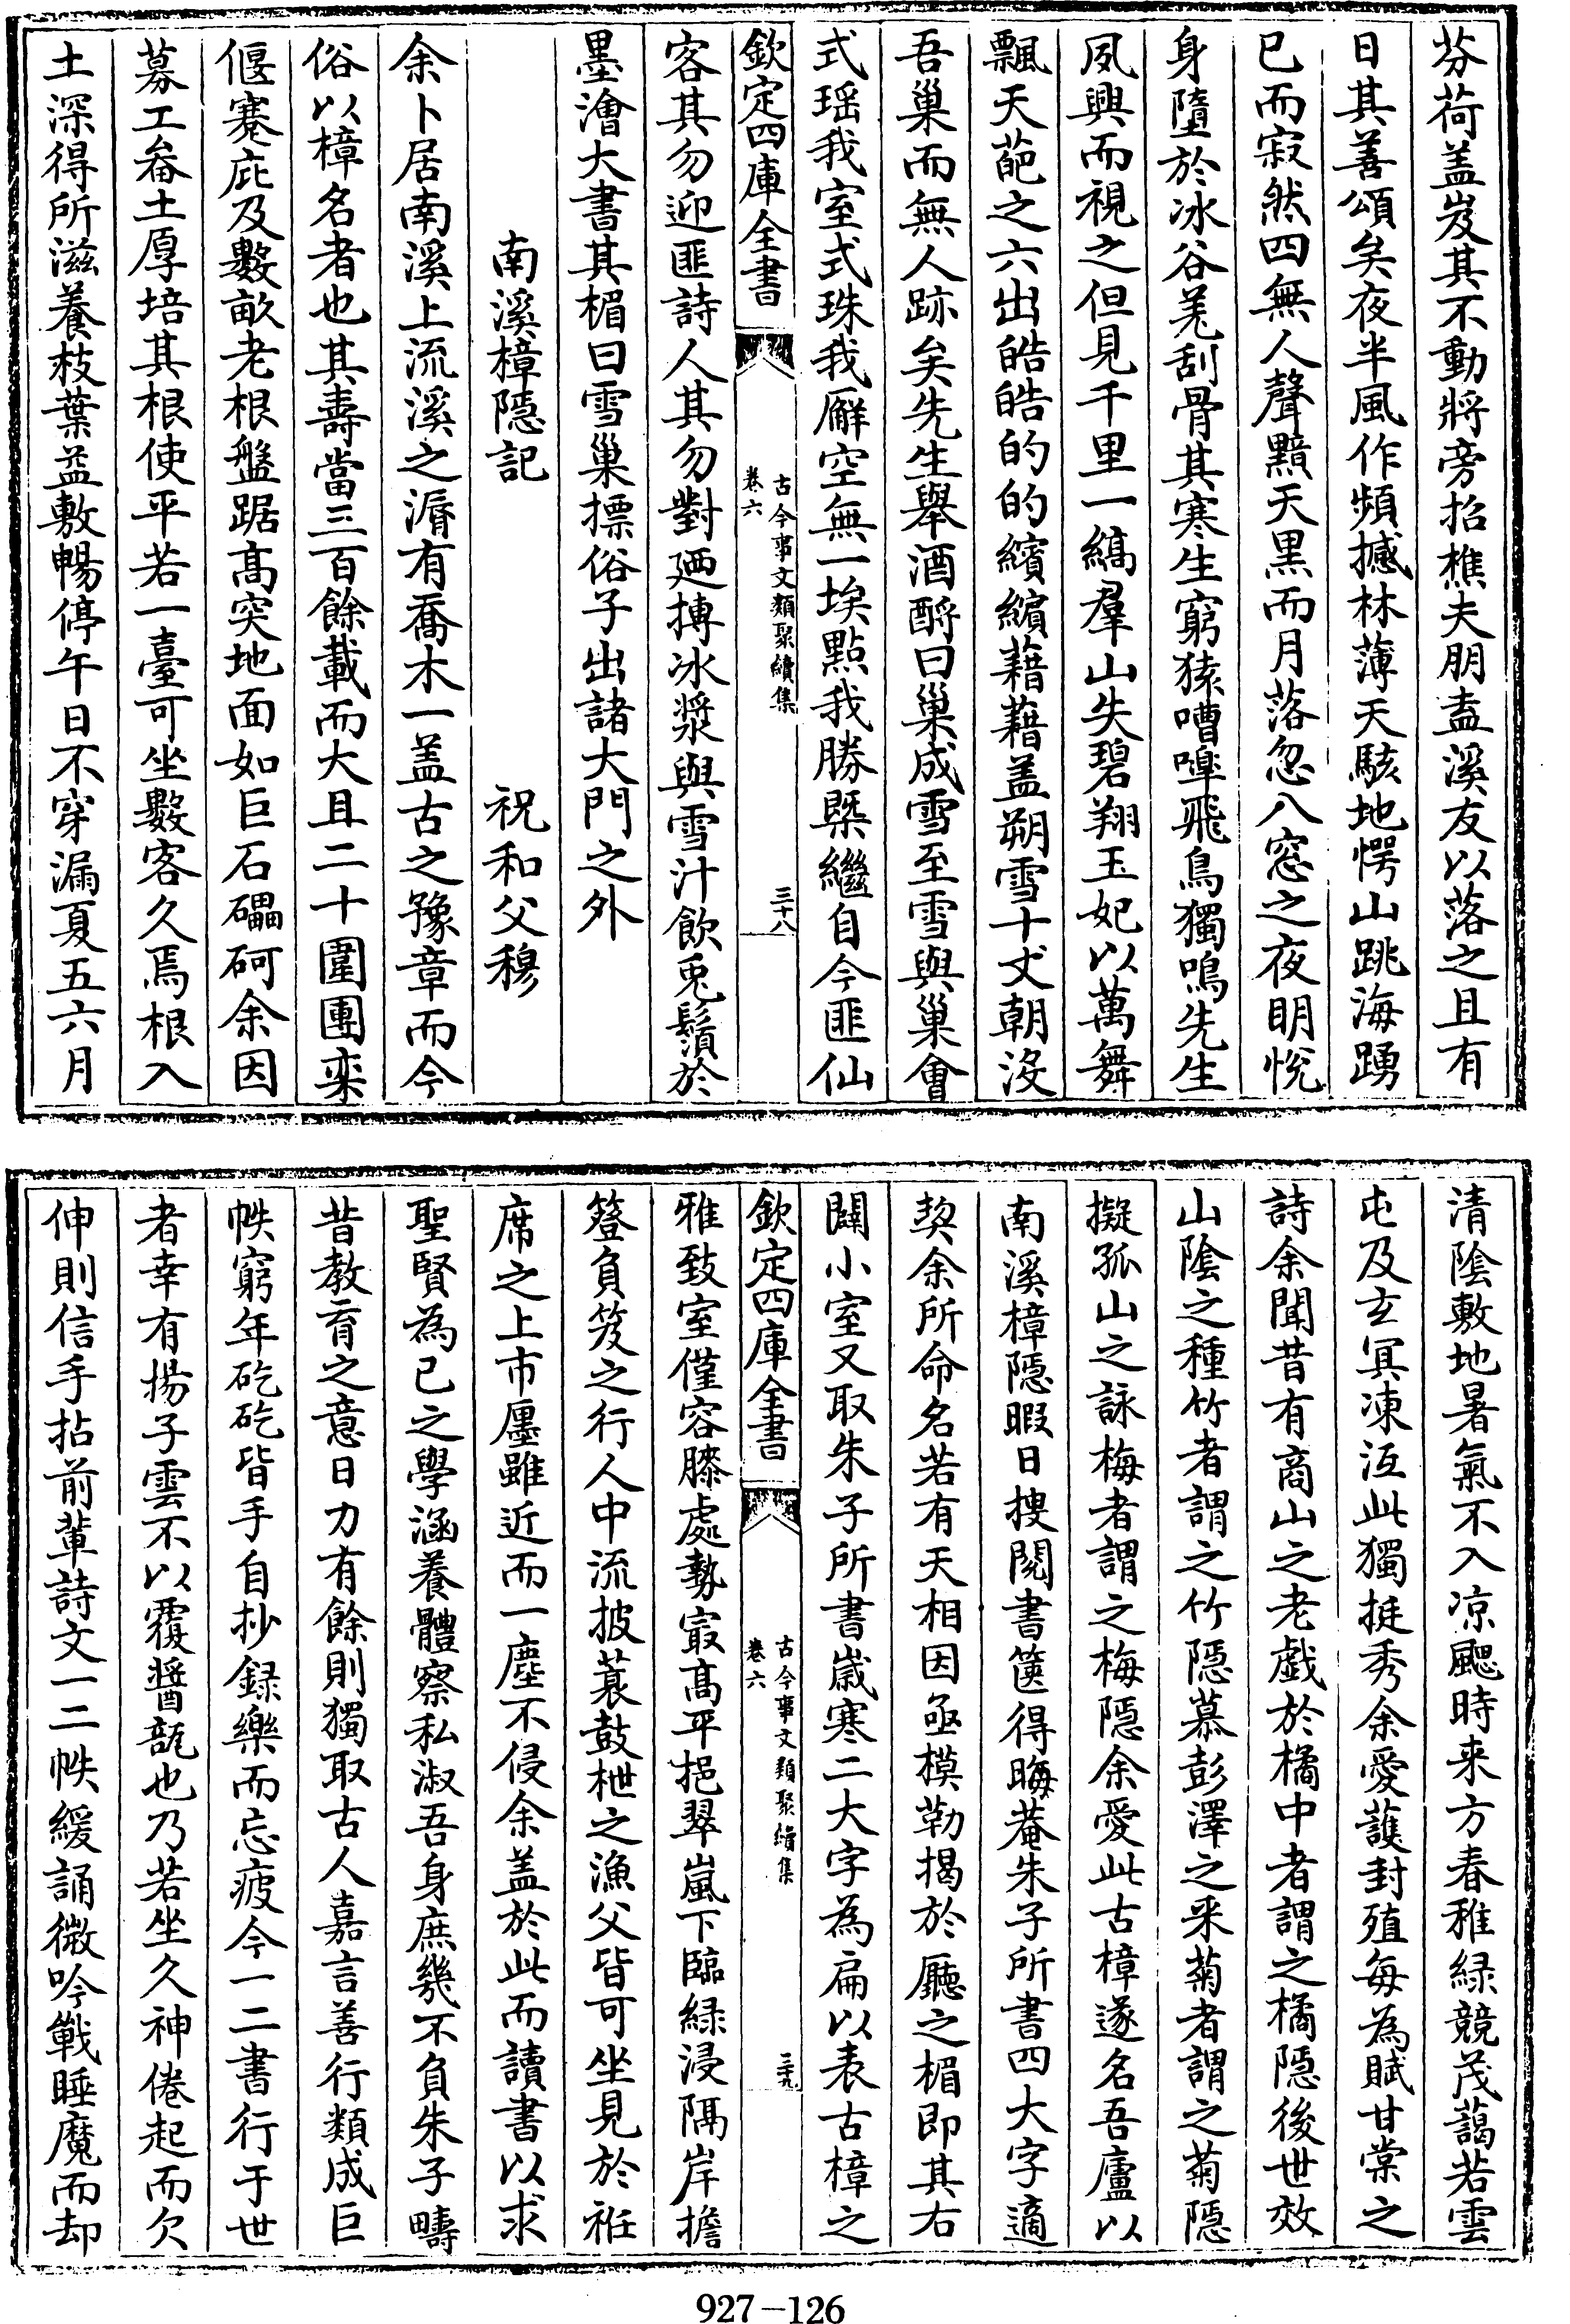 芬荷盖岌其不動將旁招樵夫朋盍溪友以落之且有
日其善頌矣夜半風作頻撼林薄天駭地愕山跳海踴
已而寂然四無人聲黯天黑而月落忽八窓之夜明恱
身墮於冰谷羗刮骨其寒生窮猿嘈嘷飛鳥獨鳴先生
夙興而視之但見千里一縞羣山失碧翔玉妃以萬舞
飄天葩之六出皓皓的的繽繽藉藉盖朔雪十丈朝沒
吾巢而無人跡矣先生舉酒酹曰巢成雪至雪與巢會
式瑶我室式珠我廨空無一埃點我勝槩繼自今匪仙
欽定四庫全書
古今事文類聚續集
卷六
三十八
客其勿迎匪詩人其勿對廼摶冰漿與雪汁飲兎鬚於
墨澮大書其楣曰雪巢摽俗子出諸大門之外
南溪樟隠記
祝和父穆
余卜居南溪上流溪之漘有喬木一盖古之豫章而今
俗以樟名者也其壽當三百餘載而大且二十圍團欒
偃蹇庇及數畝老根盤踞髙突地面如巨石礧砢余因
募工畚土厚培其根使平若一臺可坐數客久焉根入
土深得所滋養枝葉益敷暢停午日不穿漏夏五六月
清陰敷地暑氣不入凉颸時来方春稚緑競茂藹若雲
屯及玄冥凍沍此獨挺秀余愛護封殖每為賦甘棠之
詩余聞昔有商山之老戲於橘中者謂之橘隠後世效
山隂之種竹者謂之竹隠慕彭澤之采菊者謂之菊隠
擬孤山之詠梅者謂之梅隠余愛此古樟遂名吾廬以
南溪樟隠暇日搜閱書篋得晦菴朱子所書四大字適
契余所命名若有天相因亟模勒揭於廳之楣即其右
闢小室又取朱子所書嵗寒二大字為扁以表古樟之
欽定四庫全書
古今事文類聚續集
卷六
三十九
雅致室僅容膝處勢㝡髙平挹翠嵐下臨緑浸隔岸擔
簦負笈之行人中流披蓑鼓枻之漁父皆可坐見於袵
席之上市廛雖近而一塵不侵余盖於此而讀書以求
聖賢為已之學涵養體察私淑吾身庶幾不負朱子疇
昔教育之意日力有餘則獨取古人嘉言善行類成巨
帙窮年矻矻皆手自抄録樂而忘疲今一二書行于世
者幸有揚子雲不以覆醬瓿也乃若坐久神倦起而欠
伸則信手拈前輩詩文一二帙緩誦微吟戰睡魔而却
927-126